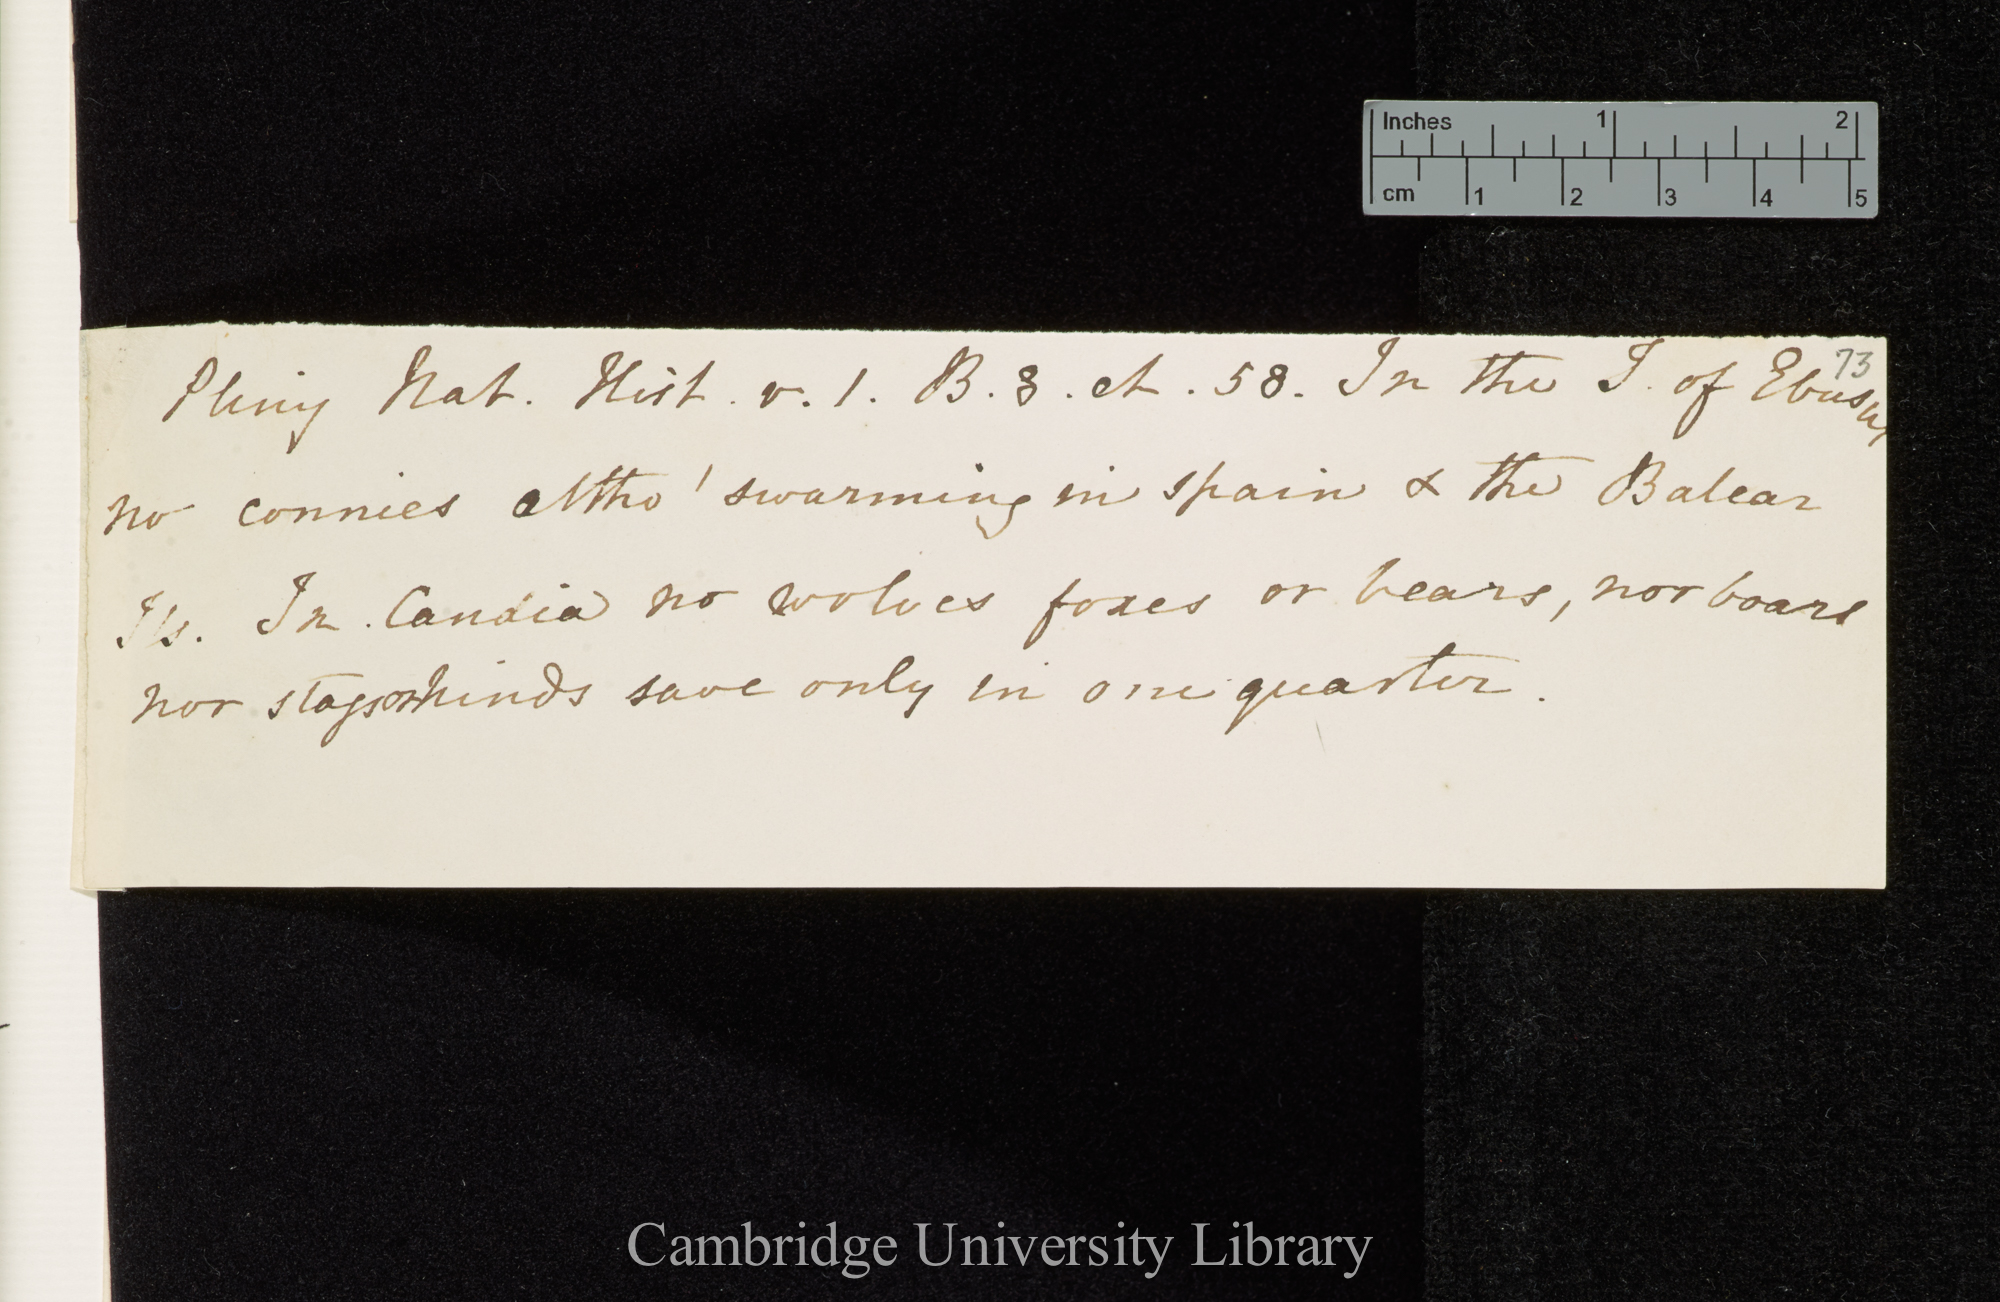 Inches 1 2
cm 1 2 3 4 5
73
Pliny Nat. Hist. v. 1. B. 8. ch. 58. In the I. of Ebusus
no connies altho' swarming in Spain & the Balear
Is. In Candia no wolves foxes or bears, nor boars
nor stags or hinds save only in one quarter.
Cambridge University Library